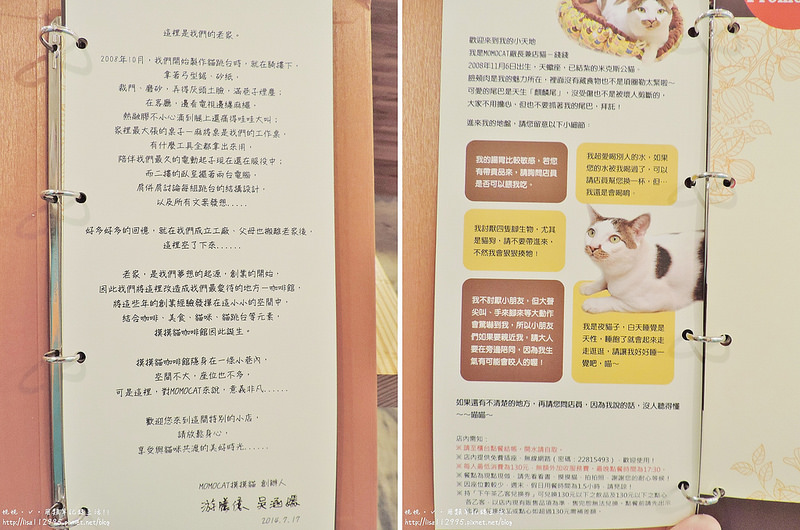 這裡是我們的老家。
2008年10月，我們開始製作貓跳台時，就在騎樓下，
拿著弓型鋸、砂紙，
裁門、磨砂，弄得灰頭土臉，滿巷子塵塵；
在客廳，邊看電視邊纏麻繩，
熱融膠不小心滴到腿上還痛得哇哇大叫；
家裡最大張的桌子－麻將桌是我們的工作桌，
有什麼工具全都拿出來用，
陪伴我們最久的電動起子現在還在服役中；
而二樓的臥室擺著兩台電腦，
肩併肩討論每組跳台的結構設計，
以及所有文案發想.....
好多好多的回憶，就在我們成立工廠、父母也搬離老家後，
這裡空了下來......
老家，是我們夢想的起源，創業的開始，
因此我們將這裡改造成我們最愛待的地方－咖啡館，
將這些年的創業經驗發揮在這小小的空間中，
結合咖啡、美食、貓咪、貓跳台等元素，
摸摸貓咖啡館因此誕生。
摸摸貓咖啡館隱身在一條小巷內，
空間不大，座位也不多，
可是這裡，對MOMOCAT來說，意義非凡......
歡迎您來到這間特別的小店，
請放鬆身心，
享受與貓咪共渡的美好時光......
MOMOCAT摸摸貓 創辦人
2014.7.17
歡迎來到我的小天地
我是MOMOCAT廠長兼店貓－錢錢
2008年11月6日出生，天蠍座，已結紮的米克斯公貓。
臉頰肉是我的魅力所在，裡面沒有藏食物也不是項圈勒太緊啦～
可愛的尾巴是天生「麒麟尾」，沒受傷也不是被壞人剪斷的，
大家不用擔心，但也不要抓著我的尾巴，拜託！
進來我的地盤，請您留意以下小細節：
我的腸胃比較敏感，若您
有帶貢品來，請詢問店員
是否可以餵我吃。
我超愛喝別人的水，如果
您的水被我喝過了，可以
請店員幫您換一杯，但…
我還是會喝唷。
我討厭四隻腳生物，尤其
是貓狗，請不要帶進來，
不然我會狠狠揍牠！
我不討厭小朋友，但大聲
尖叫、手來腳來等大動作
會驚嚇到我，所以小朋友
們如果要親近我，請大人
要在旁邊陪同，因為我生
氣有可能會咬人的喔！
我是夜貓子，白天睡覺是
天性，睡飽了就會起來走
走逛逛，請讓我好好睡一
覺吧，喵～
如果還有不清楚的地方，再請您問店員，因為我說的話，沒人聽得懂
～～喵喵～
店內需知：
※ 請至櫃台點餐結帳，開水請自取。
※ 店內提供免費插座、無線網路（密碼：22815493），歡迎使用！
※ 每人最低消費為130元，無額外加收服務費，最晚點餐時間為17:30。
※ 餐點為現點現做，請先看看書、摸摸貓、拍拍照，謝謝您的耐心等候！
※ 因座位數較少，週末、假日用餐時間為1.5小時，請見諒！
※ 持「下午茶乙客兌換券」可兌換130元以下之飲品及130元以下之點心